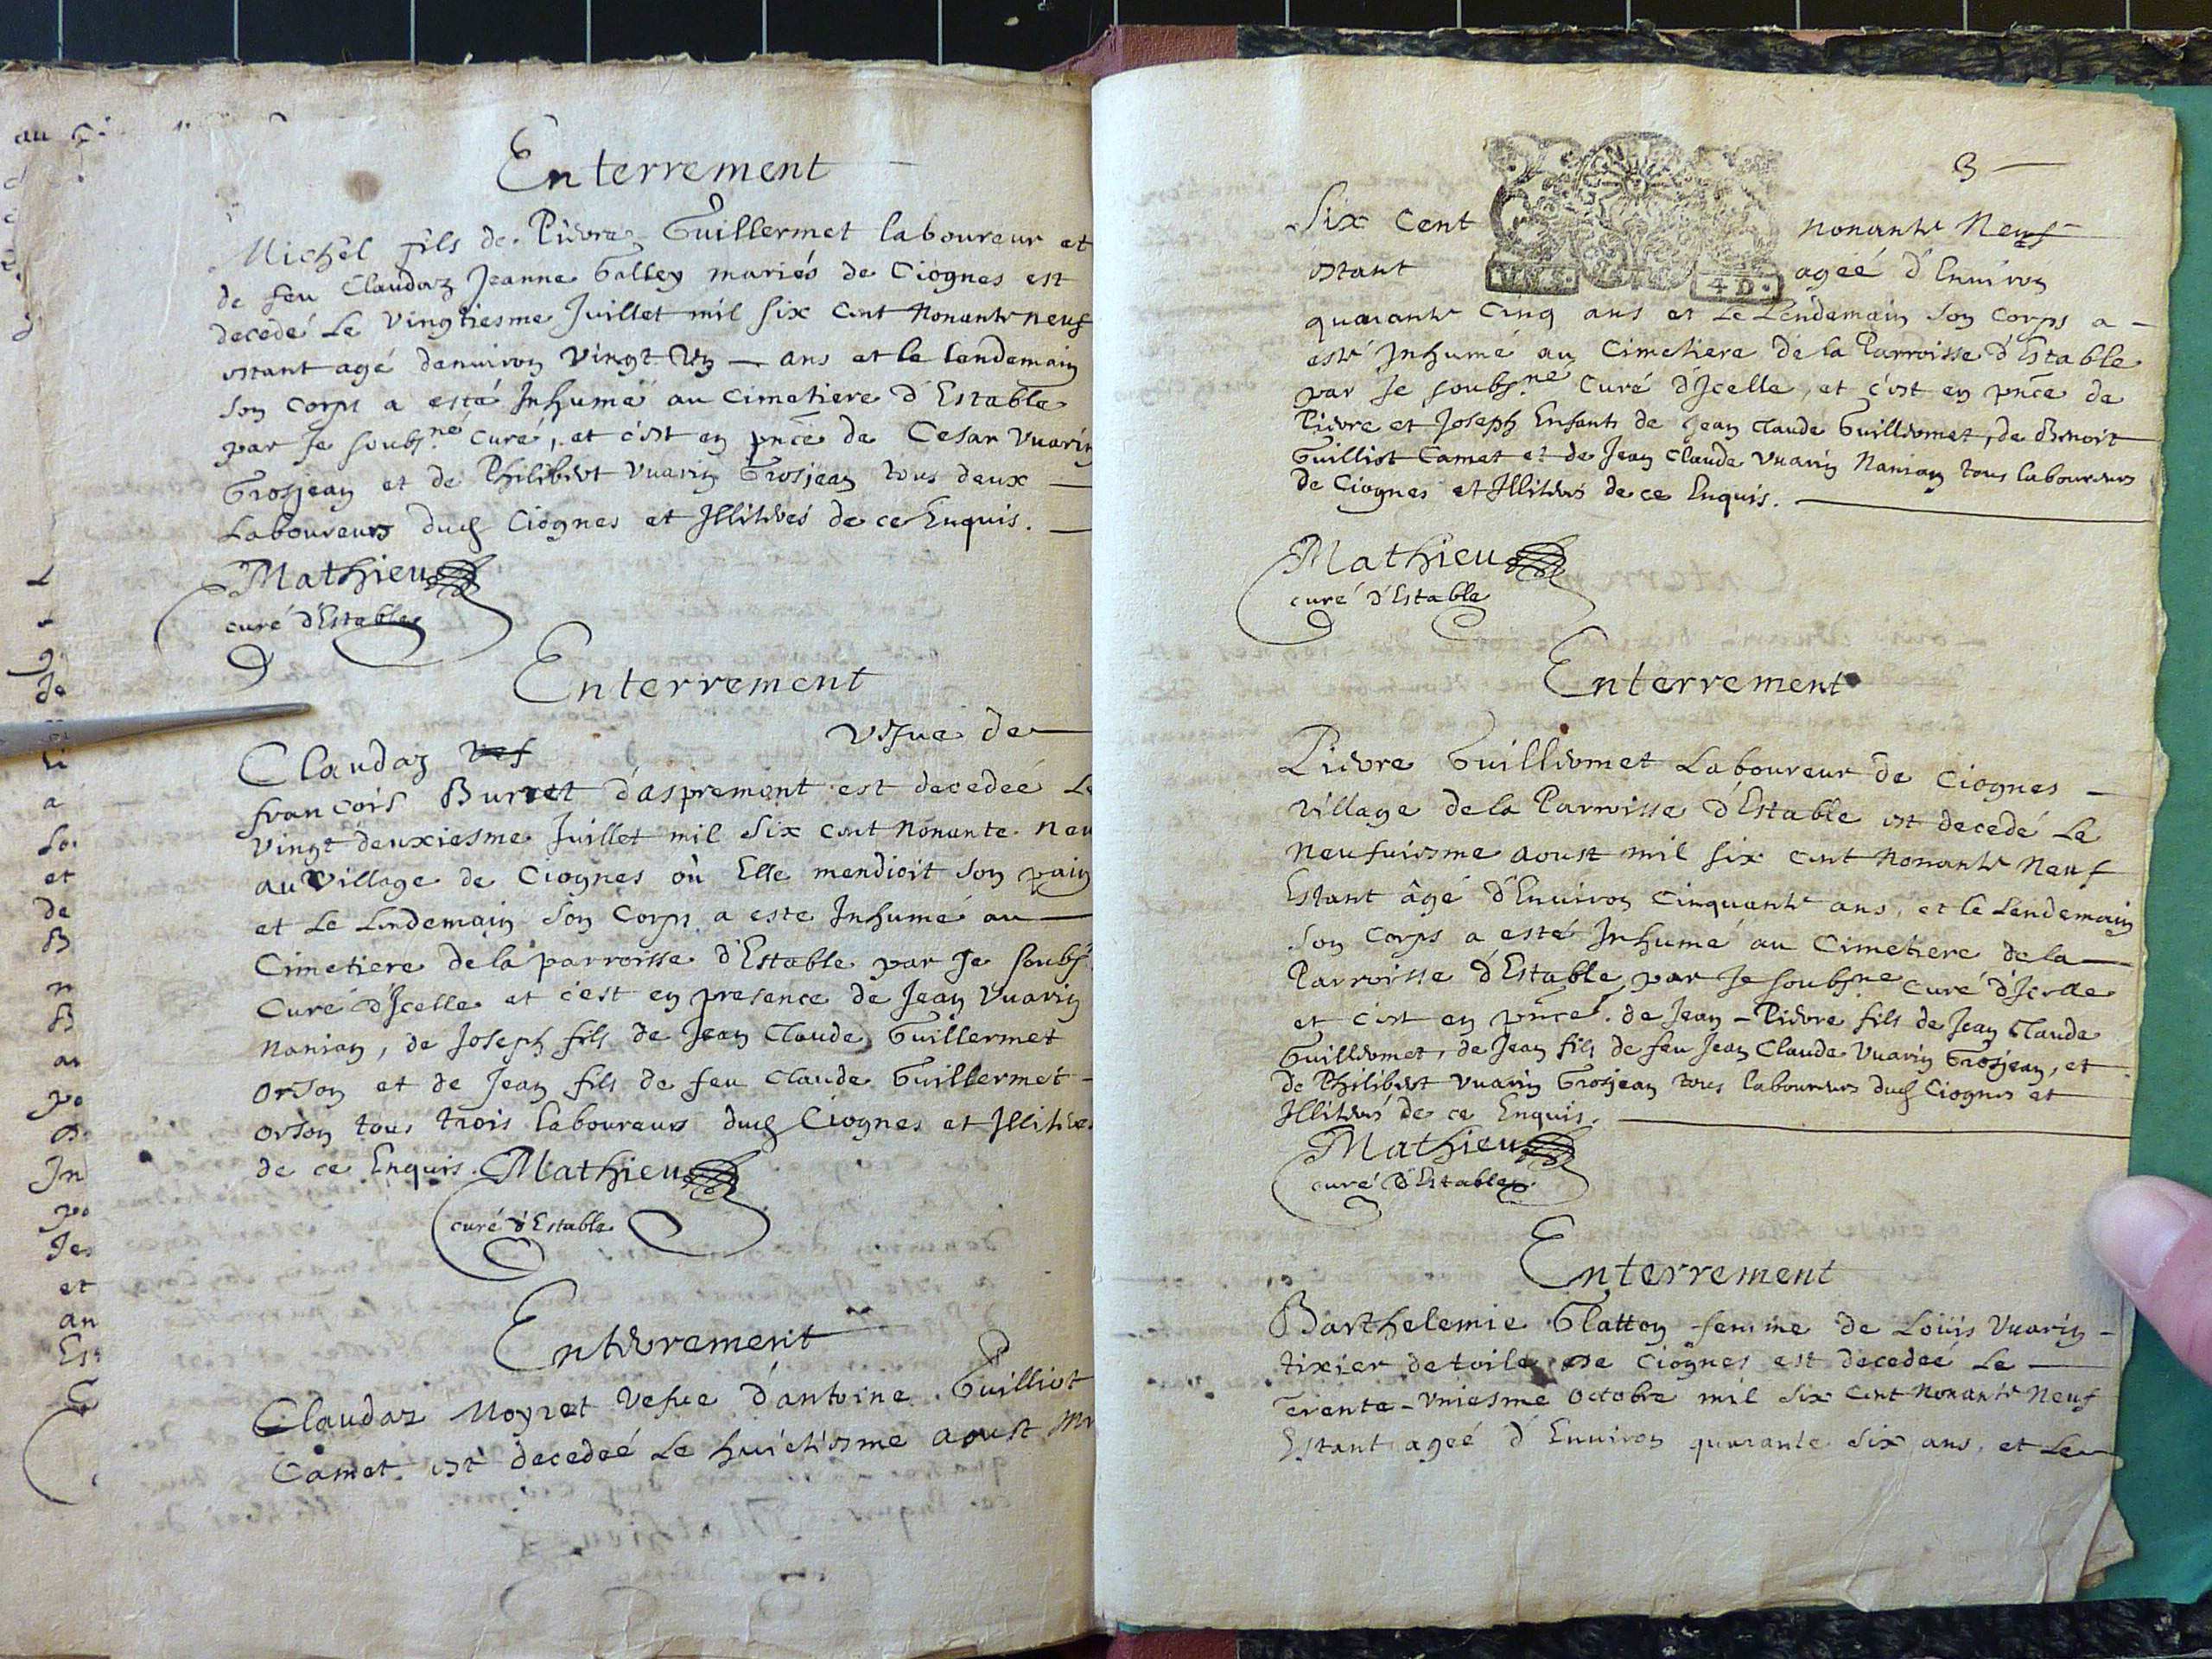 Enterrement
Michel fils de Pierre Guillermet laboureur et
de feu Claudaz Jeanne Galley mariés de Ciognes est
decedé Le Vingtiesme Juillet mil six cent Nonante neuf
estant agé denuiron Vingt Un — ans et le lendemain
son corps a esté Inhumé au cimetiere d'Estable
par Je soubs.né curé, et c'est en pnce de Cesar Vuarin
Grosjean et de Philibert Vuarin Grosjean tous deux —
Laboureurs dud Ciognes et Illiterés de ce Enquis. —
Mathieu
curé d'Estable
Enterrement
Claudaz vef vefue de —
francois Burret d'aspremont est decedeé Le
vingt deuxiesme Juillet mil Six cent Nonante neu
au Village de Ciognes où Elle mendioit son pain
et Le Lendemain son Corps a este Inhumé au —
Cimetiere de la parroisse d'Estable par Je soubs.
Curé d'Icelle et c'est en presence de Jean Vuarin
Nanian, de Joseph fils de Jean Claude Guillermet
orson et de Jean fils de feu Claude Guillermet —
orson tous trois laboureurs dud Ciognes et Illiteres
de ce Enquis. Mathieu
curé d'Estable
Enterrement
Claudaz Moyret Vefue d'antoine Guilliot
Camet est decedeé Le huictiesme aoust mi
3 —
Six Cent nonante Neuf
estant ageé d'Enuiron
4 D.
quarante Cinq ans et Le Lendemain son Corps a —
esté Inhumé au Cimetiere de la Parroisse d'Estable
par Je soubs.né Curé d'Icelle, et c'est en pnce de
Pierre et Joseph Enfants de Jean Claude Guillermet, de Benoit
Guilliot Camet et de Jean Claude Vuarin Nanian tous laboureurs
de Ciognes et Illiterés de ce Enquis. —
Mathieu
curé d'Estable
Enterrement
Pierre Guillermet Laboureur de Ciognes —
village de la Parroisse d'Estable est decedé Le
neufuiesme aoust mil six cent Nonante Neuf
Estant âgé d'Enuiron Cinquante ans, et le Lendemain
Son Corps a esté Inhumé au Cimetiere de la —
Parroisse d'Estable par Je soubsne Curé d'Icelle
et c'est en pnce. de Jean-Pierre fils de Jean Claude
Guillermet, de Jean fils de feu Jean Claude Vuarin Grosjean, et
de Philibert Vuarin Grosjean tous laboureurs dud Ciognes et
Illiterés de ce Enquis. —
Mathieu
curé d'Estable
Enterrement
Barthelemie Glatton femme de Loüis Vuarin —
tixier de toile de Ciognes est decedeé Le —
Trente-Uniesme Octobre mil Six Cent Nonante Neuf
Estant ageé d'Enuiron quarante six ans, et Le —